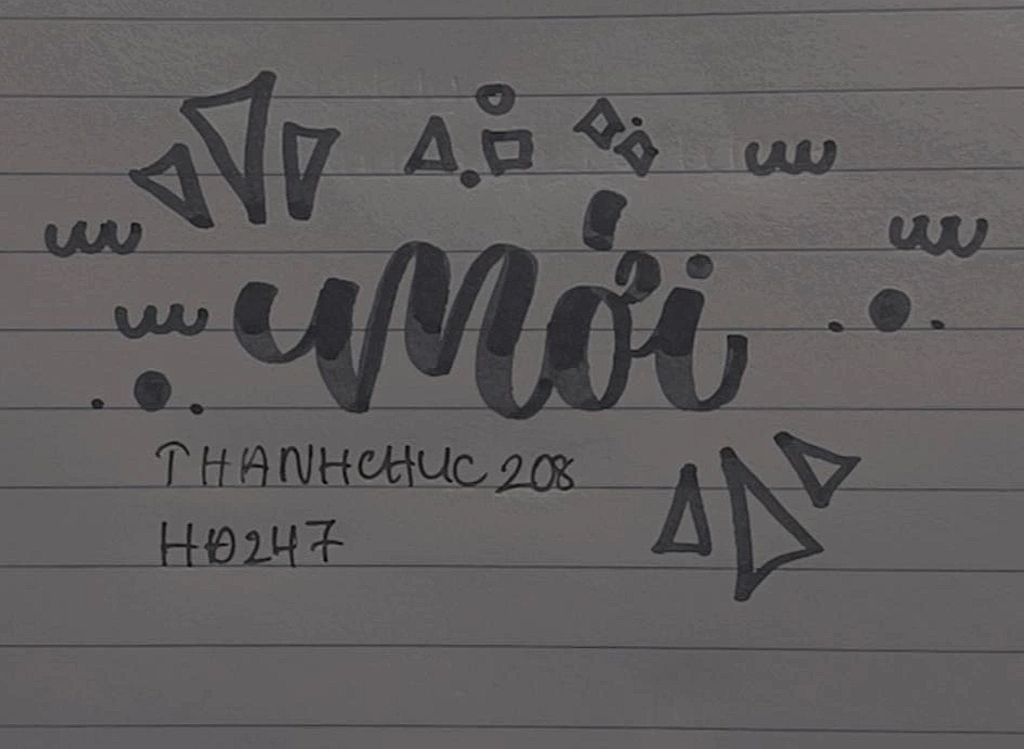 mới
THANHCHUC208
HĐ247